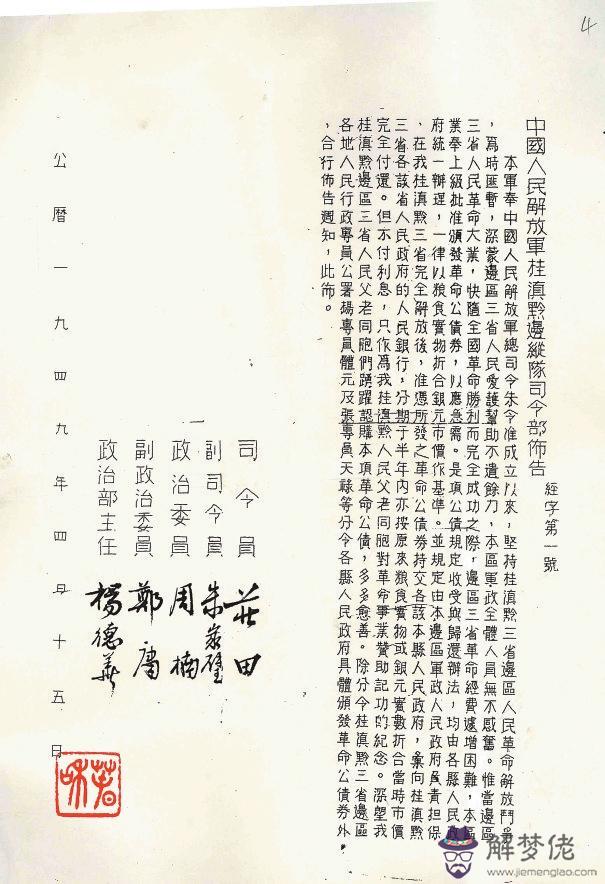 4
中國人民解放軍桂滇黔邊縱隊司令部佈告
經字第一號
本軍奉中國人民解放軍總司令朱令准成立以來，堅持桂滇黔三省邊區人民革命解放鬥爭
，為時匪暫，深蒙邊區三省人民愛護幫助不遺餘力，本區軍政全體人員無不感奮。惟當邊區
三省人民革命大業，快隨全國革命勝利而完全成功之際，邊區三省革命經費遽增困難，本區
業奉上級批准頒發革命公債券，以應急需。是項公債規定收受與歸還辦法，均由各縣人民政
府統一辦理，一律以粮食實物折合銀元市價作基準。並規定由本邊區軍政人民政府負責担保
，在我桂滇黔三省完全解放後，准憑所發之革命公債券持交各該本縣人民政府，彙向桂滇黔
三省各該省人民政府的人民銀行，分期于半年內亦按原來粮食實物或銀元實數折合當時市價
完全付還。但不付利息，只作為我桂滇黔人民父老同胞對革命事業贊助記功的紀念。深望我
桂滇黔邊區三省人民父老同胞們踴躍認購本項革命公債，多多愈善。除分令桂滇黔三省邊區
各地人民行政專員公署楊專員體元及張專員天祿等分令各縣人民政府具體頒發革命公債券外
，合行佈告週知，此佈。
司令員 莊田
副司令員 朱家璧
政治委員 周楠
副政治委員 鄭庸
政治部主任 楊德華
公曆一九四九年四月十五日
解梦佬
www.jiemenglao.com